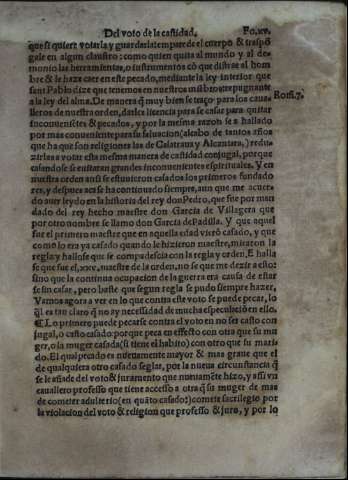 Del voto de la castidad. Fo.xv.
que si quiere votarla y guardarla: empareде el cuerpo & traspō
gale en algun claustro: como quien quita al mundo y al de-
monio las herramientas, o instrumentos cō que distrae al hom
bre & le haze caer en este pecado, mediante la ley interior que
sant Pablo dize que tenemos en nuestros miēbros repugnante
a la ley del alma. De manera q̄ muy bien se traço para los caua Rom.7.
lleros de nuestra orden, darles licencia para se casar para quitar
inconuenientes & pecados, y por la mesma razon se a hallado
por mas conueniente para su saluacion (al cabo de tantos años
que ha que son religiones las de Calatraua y Alcantara,) redu-
zirlas a votar esta mesma manera de castidad conjugal, porque
casandose se euitaran grandes inconuenientes spirituales. Y en
nuestra orden ansi se estuuieron casados los primeros fundado
res, y despues aca se ha continuado siempre, aun que me acuer-
do auer leydo en la historia del rey don Pedro, que fue por man
dado del rey hecho maestre don Garcia de Villagera que
por otro nombre se llamo don Garcia de Padilla. Y que aquel
fue el primero maestre que en aquella edad vierō casado, y que
como lo era ya casado quando le hizieron maestre, miraron la
regla y hallose que se compadescia con la regla y orden. E halla
se que fue el .xxv. maestre de la orden, no se que me dezir a esto:
sino que la continua ocupacion de la guerra era causa de estar
se sin casar, pero baste que segun regla se pudo siempre hazer,
Vamos agora a ver en lo que contra este voto se puede pecar, lo
q̄l es tan claro q̄ no ay necessidad de mucha especulaciō en ello.
¶ Lo primero puede pecarse contra el voto en no ser casto con
jugal, o casto casado: porque peca en effecto con otra que su mu
ger, o la muger casada (si tiene el habito) con otro que su mari
do. El qual pecado es nueuamente mayor & mas graue que el
de qualquiera otro casado seglar, por la nueua circunstancia q̄
se le añade del voto & juramento que nueuamēte hizo, y assi vn
cauallero professo que tiene accesso a otra q̄ su muger de mas
de cometer adulterio (en quāto casado:) comete sacrilegio por
la violacion del voto & religion que professo & juro, y por lo